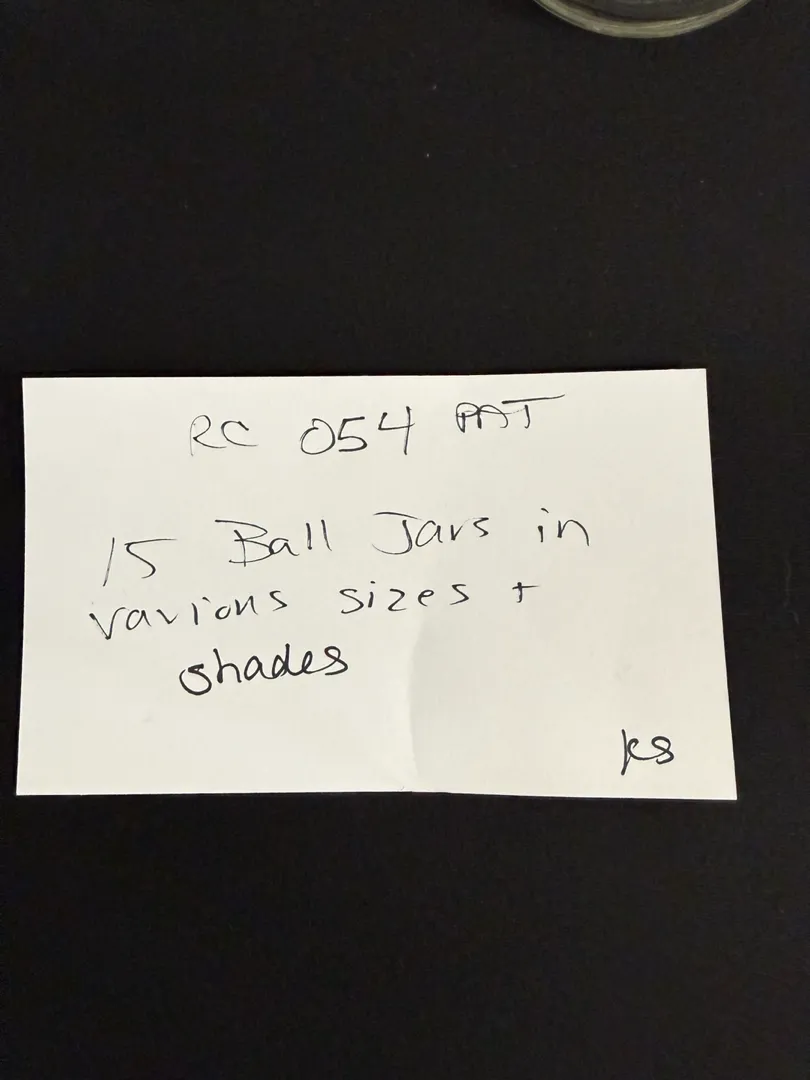 RC 054 PAT
15 Ball Jars in
various sizes +
shades
KS